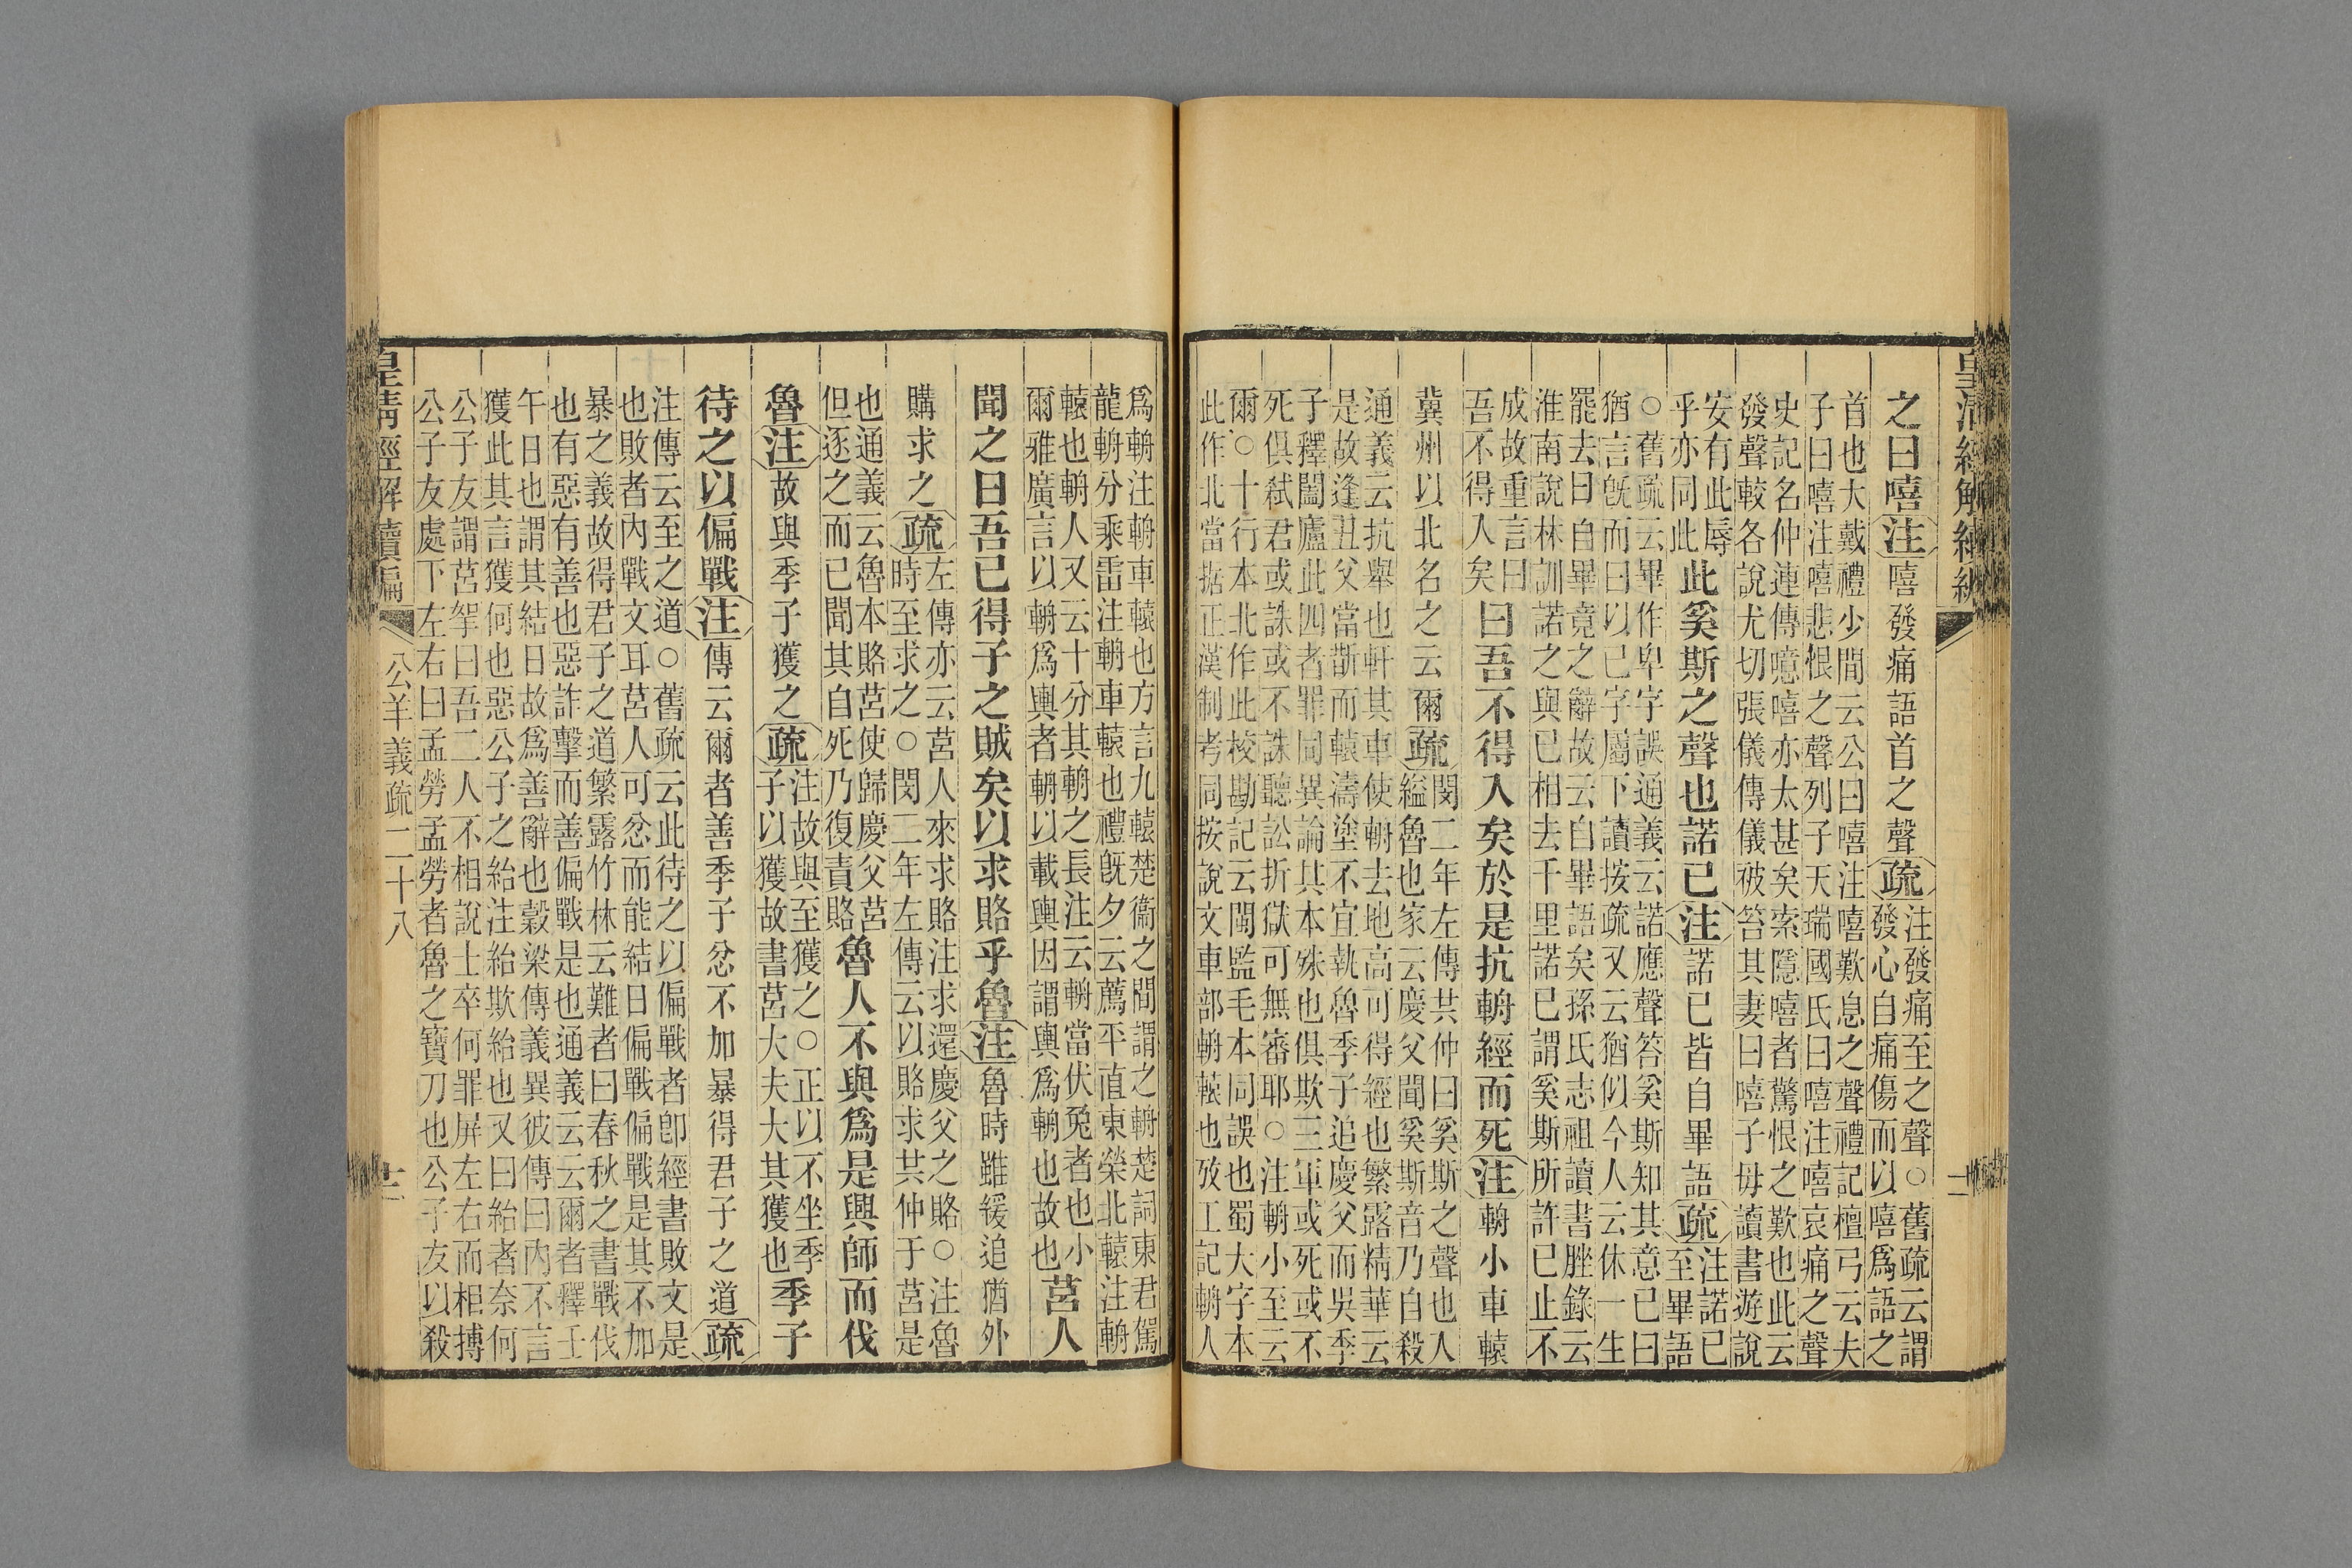 皇清經解續編
之曰嘻注嘻發痛語首之聲疏注發痛至之聲○舊疏云謂
發心自痛傷而以嘻爲語之
首也大戴禮少閒云公曰嘻注嘻歎息之聲禮記檀弓云夫
子曰嘻注嘻悲恨之聲列子天瑞國氏曰嘻注嘻哀痛之聲
史記名仲連傳噫嘻亦太甚矣索隱嘻者驚恨之歎也此云
發聲較各說尤切張儀傳儀被笞其妻曰嘻子毋讀書遊說
安有此辱
乎亦同此此奚斯之聲也諾已注諾已皆自畢語疏注諾已
至畢語
○舊疏云畢作卑字誤通義云諾應聲答奚斯知其意已曰
猶言旣而曰以已字屬下讀按疏又云猶似今人云休一生
罷去曰自畢竟之辭故云自畢語矣孫氏志祖讀書脞錄云
淮南說林訓諾之與已相去千里諾已謂奚斯所許已止不
成故重言曰
吾不得入矣曰吾不得入矣於是抗輈經而死注輈小車轅
冀州以北名之云爾疏閔二年左傳共仲曰奚斯之聲也人
縊魯也家云慶父聞奚斯音乃自殺
通義云抗舉也軒其車使輈去地高可得經也繁露精華云
是故逢丑父當斮而轅濤塗不宜執魯季子追慶父而吳季
子釋闔廬此四者罪同異論其本殊也俱欺三軍或死或不
死俱弒君或誅或不誅聽訟折獄可無審耶○注輈小至云
爾○十行本北作此校勘記云閩監毛本同誤也蜀大字本
此作北當据正漢制考同按說文車部輈轅也攷工記輈人
爲輈注輈車轅也方言九轅楚衞之閒謂之輈楚詞東君駕
龍輈分乘雷注輈車轅也禮旣夕云薦平直東榮北轅注輈
轅也輈人又云十分其輈之長注云輈當伏兔者也小
爾雅廣言以輈爲輿者輈以載輿因謂輿爲輈也故也莒人
聞之曰吾已得子之賊矣以求賂乎魯注魯時雖緩追猶外
購求之疏左傳亦云莒人來求賂注求還慶父之賂○注魯
時至求之○閔二年左傳云以賂求共仲于莒是
也通義云魯本賂莒使歸慶父莒
但逐之而已聞其自死乃復責賂魯人不與爲是興師而伐
魯注故與季子獲之疏注故與至獲之○正以不坐季
子以獲故書莒大夫大其獲也季子
待之以偏戰注傳云爾者善季子忿不加暴得君子之道疏
注傳云至之道○舊疏云此待之以偏戰者卽經書敗文是
也敗者內戰文耳莒人可忿而能結日偏戰偏戰是其不加
暴之義故得君子之道繁露竹林云難者曰春秋之書戰伐
也有惡有善也惡詐擊而善偏戰是也通義云云爾者釋壬
午日也謂其結日故爲善辭也穀梁傳義異彼傳曰內不言
獲此其言獲何也惡公子之紿注紿欺紿也又曰紿者奈何
公子友謂莒挐曰吾二人不相說士卒何罪屏左右而相搏
公子友處下左右曰孟勞孟勞者魯之寶刀也公子友以殺
皇清經解續編
公羊義疏二十八